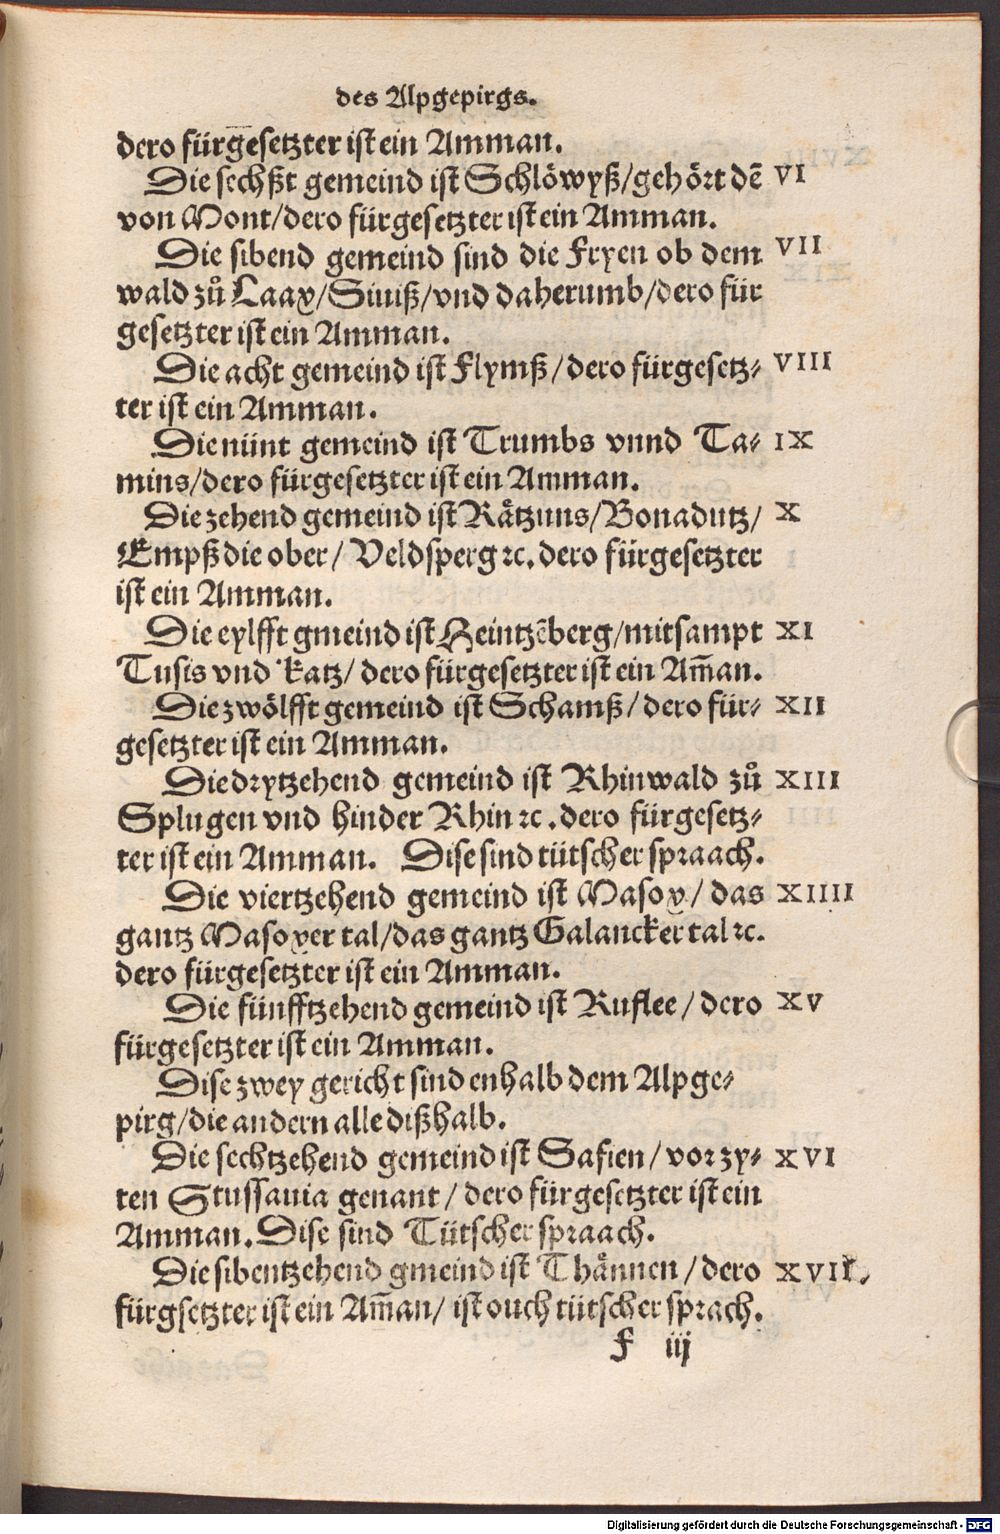 des Alpgepirgs.
dero fürgesetzter ist ein Amman.
Die sechßt gemeind ist Schlöwyß/gehört dē VI
von Mont/dero fürgesetzter ist ein Amman.
Die sibend gemeind sind die Fryen ob dem VII
wald zů Laax/Siuiß/vnd daherumb/dero für
gesetzter ist ein Amman.
Die acht gemeind ist Flymß/dero fürgesetz⸗ VIII
ter ist ein Amman.
Die nünt gemeind ist Trumbs vnnd Ta⸗ IX
mins/dero fürgesetzter ist ein Amman.
Die zehend gemeind ist Rätzuns/Bonadutz/ X
Empß die ober/Veldsperg ꝛc. dero fürgesetzter
ist ein Amman.
Die eylfft gmeind ist Heintzēberg/mitsampt XI
Tusis vnd Katz/dero fürgesetzter ist ein Am̄an.
Die zwölfft gemeind ist Schamß/dero für⸗ XII
gesetzter ist ein Amman.
Die drytzehend gemeind ist Rhinwald zů XIII
Splugen vnd hinder Rhin ꝛc. dero fürgesetz⸗
ter ist ein Amman. Dise sind tütscher spraach.
Die viertzehend gemeind ist Masox/das XIIII
gantz Masoxer tal/das gantz Galancker tal ꝛc.
dero fürgesetzter ist ein Amman.
Die fünfftzehend gemeind ist Ruflee/dero XV
fürgesetzter ist ein Amman.
Dise zwey gericht sind enhalb dem Alpge⸗
pirg/die andern alle dißhalb.
Die sechtzehend gemeind ist Safien/vor zy⸗ XVI
ten Stussauia genant/dero fürgesetzter ist ein
Amman. Dise sind Tütscher spraach.
Die sibentzehend gmeind ist Thännen/dero XVII.
fürgsetzter ist ein Am̄an/ist ouch tütscher sprach.
F iij
Digitalisierung gefördert durch die Deutsche Forschungsgemeinschaft - DFG